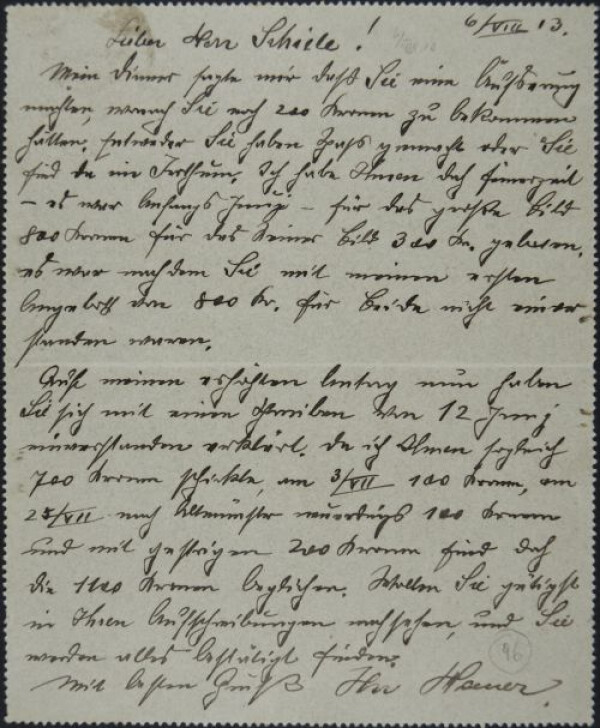 6/VIII 13.
Lieber Herr Schiele!
Mein Diener sagte mir daß Sie eine Äußerung
machten, wonach Sie noch 200 Kronen zu bekommen
hätten. Entweder Sie haben Spaß gemacht oder Sie
sind da im Irrthum. Ich habe Ihnen doch seinerzeit
– es war Anfangs Juni – für das große Bild
800 Kronen für das kleine Bild 300 Kr. geboten.
es war nachdem Sie mit meinem ersten
Angebot von 800 Kr. für beide nicht einver
standen waren.
Auf meinen erhöhten Antrag nun haben
Sie sich mit einem Schreiben von 12 Juni
einverstanden erklärt. Da ich Ihnen sogleich
700 Kronen schickte, am 3/VII 100 Kronen, am
25/VII nach Altmünster neuerdings 100 Kronen
und mit gestrigen 200 Kronen sind doch
die 1100 Kronen beglichen. Wollen Sie gütigst
in Ihren Aufschreibungen nachsehen, und Sie
werden alles bestätigt finden.
Mit besten Gruß Ihr Hauer.
96